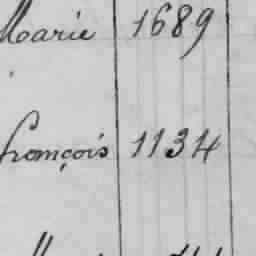 Marie 1689
françois 1134